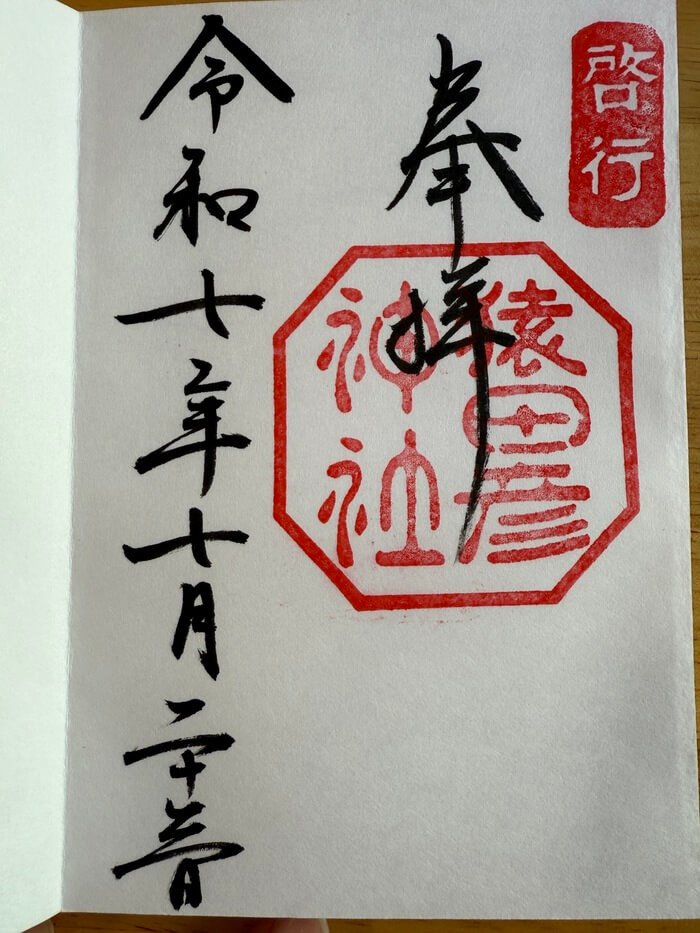 啓行
奉拝
猿田彦
神社
令和七年十月二十日